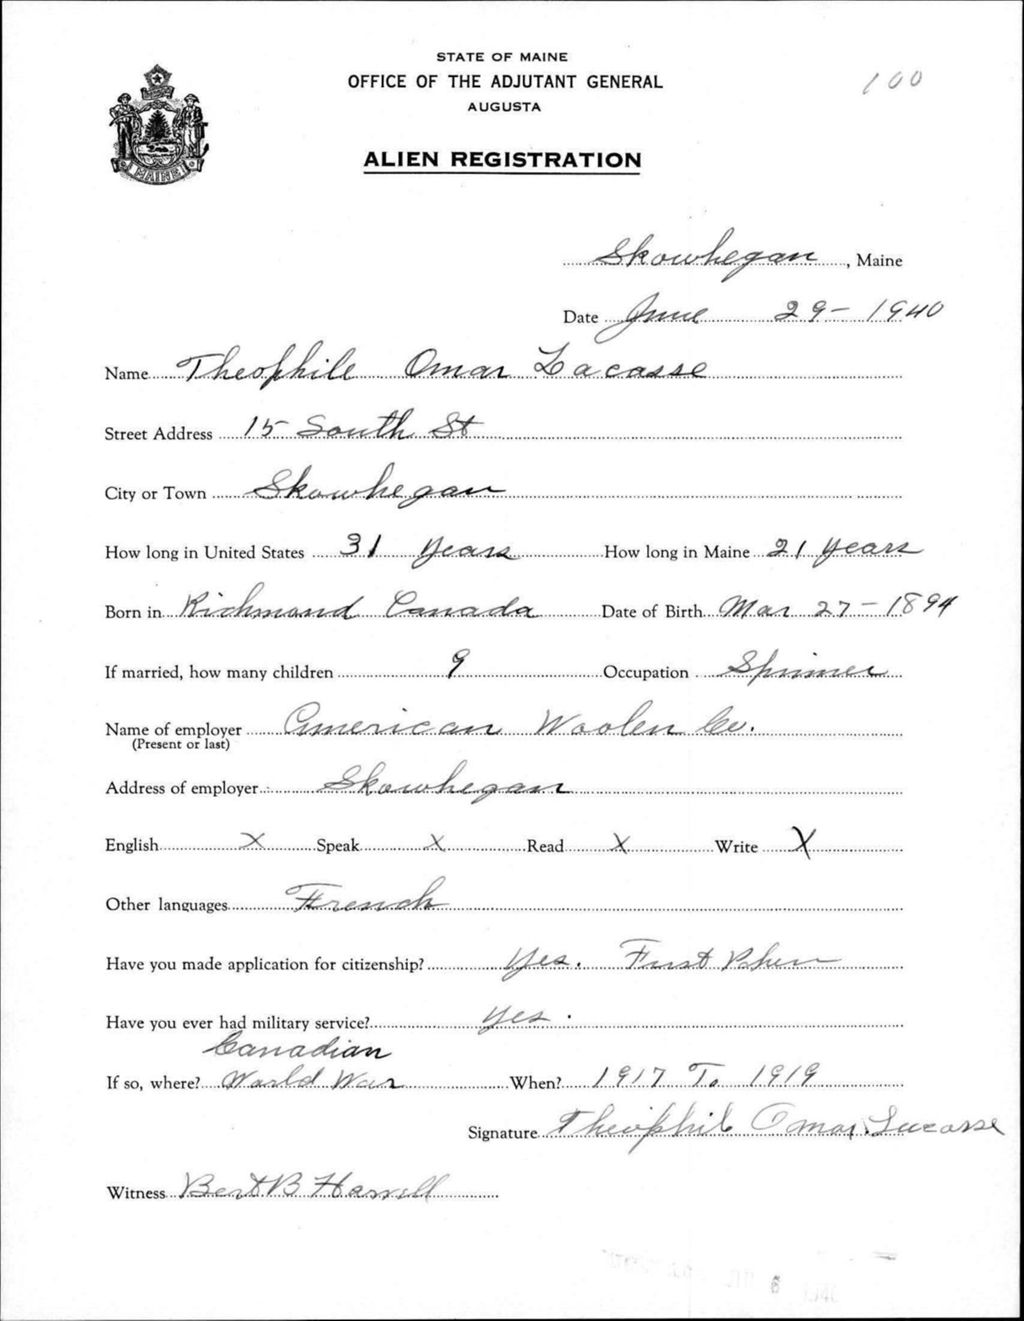 STATE OF MAINE
OFFICE OF THE ADJUTANT GENERAL
AUGUSTA
100
MAINE
ALIEN REGISTRATION
Skowhegan, Maine
Date June 29 - 1940
Name Theophile Omar Lacasse
Street Address 15 South St
City or Town Skowhegan
How long in United States 31 years How long in Maine 21 years
Born in Richmond Canada Date of Birth Mar 27 - 1894
If married, how many children 9 Occupation Spinner
Name of employer American Woolen Co.
(Present or last)
Address of employer Skowhegan
English X Speak X Read X Write X
Other languages French
Have you made application for citizenship? Yes. First
Have you ever had military service? Yes.
Canadian
If so, where? World War When? 1917 To 1919
Signature Theophile Omar Lacasse
Witness Bert B